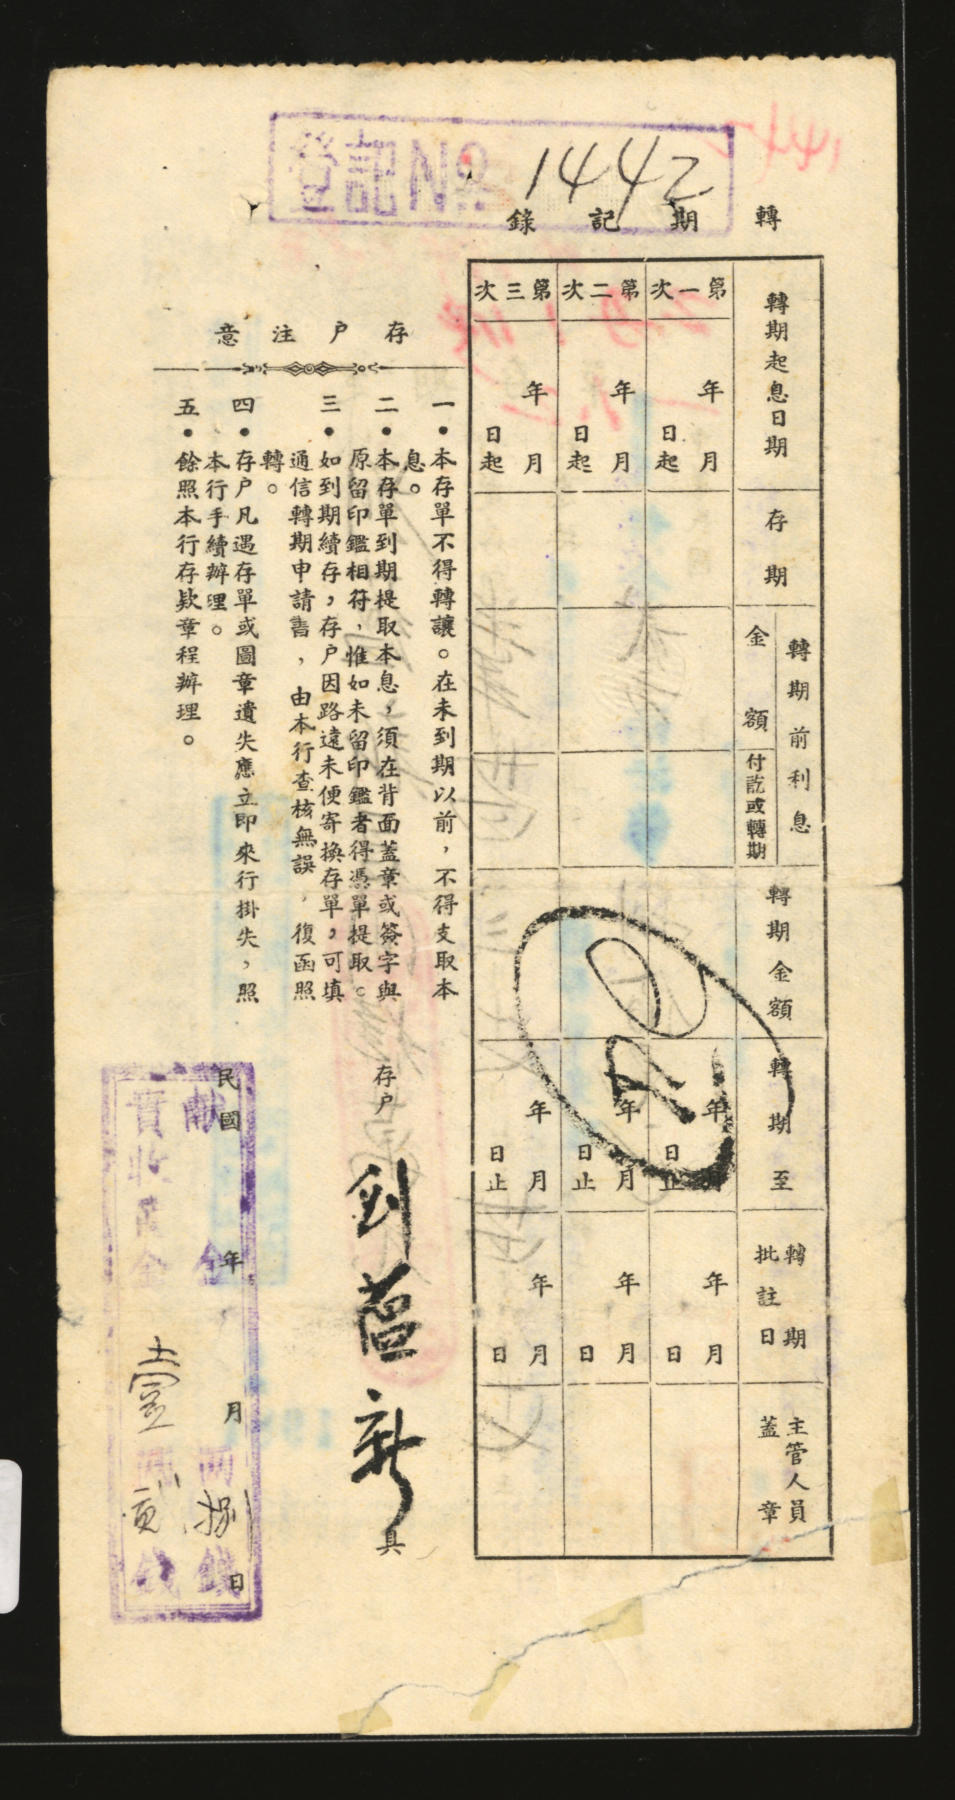 登記No 1442
轉期記錄
轉期起息日期
存期
轉期前利息
金額
付訖或轉期
轉期金額
轉期至
轉期批註日期
主管人員蓋章
第一次
年月日起
年月日止
年月日
第二次
年月日起
年月日止
年月日
第三次
年月日起
年月日止
年月日
存户注意
一•本存單不得轉讓。在未到期以前,不得支取本
息。
二•本存單到期提取本息,須在背面蓋章或簽字與
原留印鑑相符,惟如未留印鑑者得憑單提取。
三•如到期續存,存户因路遠未便寄換存單,可填
通信轉期申請書,由本行查核無誤,復函照
轉。
四•存户凡遇存單或圖章遺失應立即來行掛失,照
本行手續辦理。
五•餘照本行存欵章程辦理。
存户 劉 新 具
民國 年 月 日
献金 兩捌錢
實收黃金 壹 錢